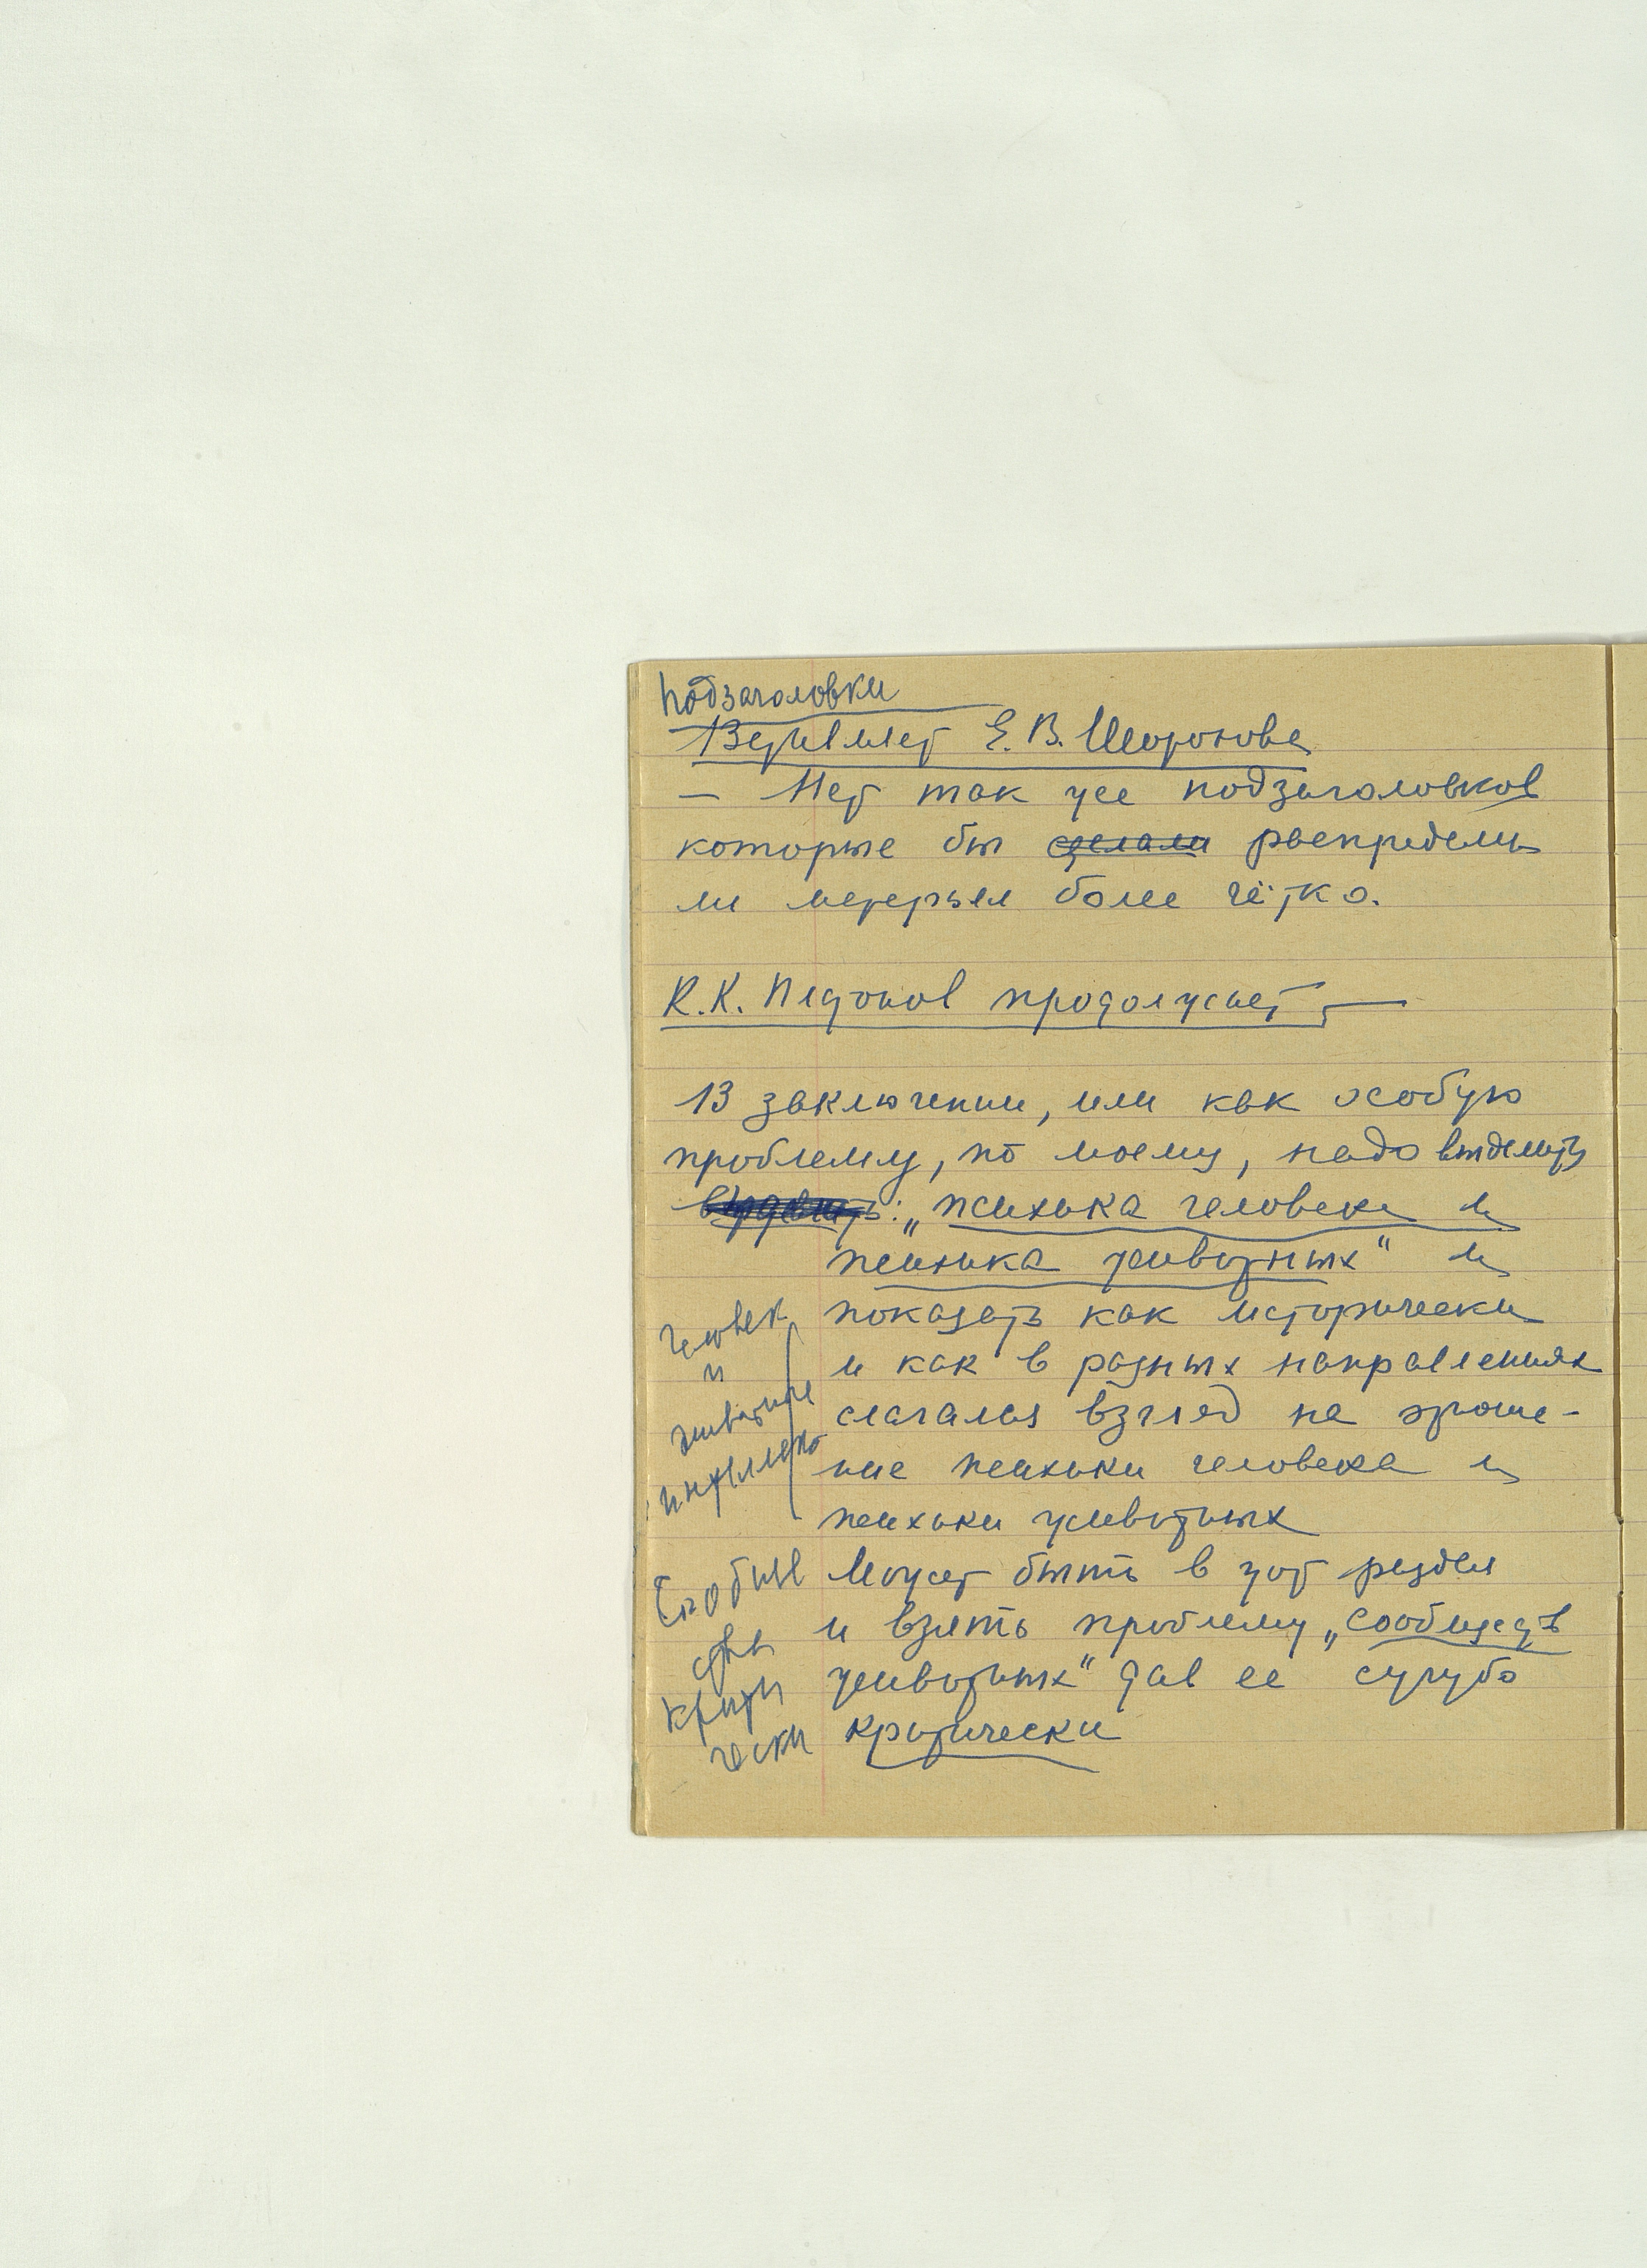 Подзаголовки
Вставляет Е. В. Шорохова
— Нет так же подзаголовков
которые бы сделали распредели
ли материал более чётко.
К. К. Платонов продолжает —
В заключении, или как особую
проблему, по моему, надо выделить
: „психика человека и
психика животных" и
показать как исторически
и как в разных направлениях
слагался взгляд на отноше-
ние психики человека и
психики животных
Может быть в этот раздел
и взять проблему „сообществ
животных" дав ее сугубо
критически
Человек
и
животные
интеллект
дать
крити
чески